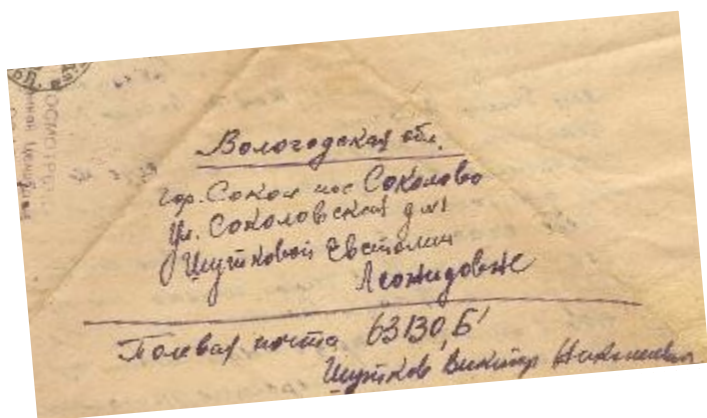 Вологодская обл.
гор. Сокол пос Соколово
ул. Соколовская д №1
Шутковой Евстолии
Леонидовне
Полевая почта 63130,Б
Шутков Виктор Николаевич
ПРОСМОТРЕНО